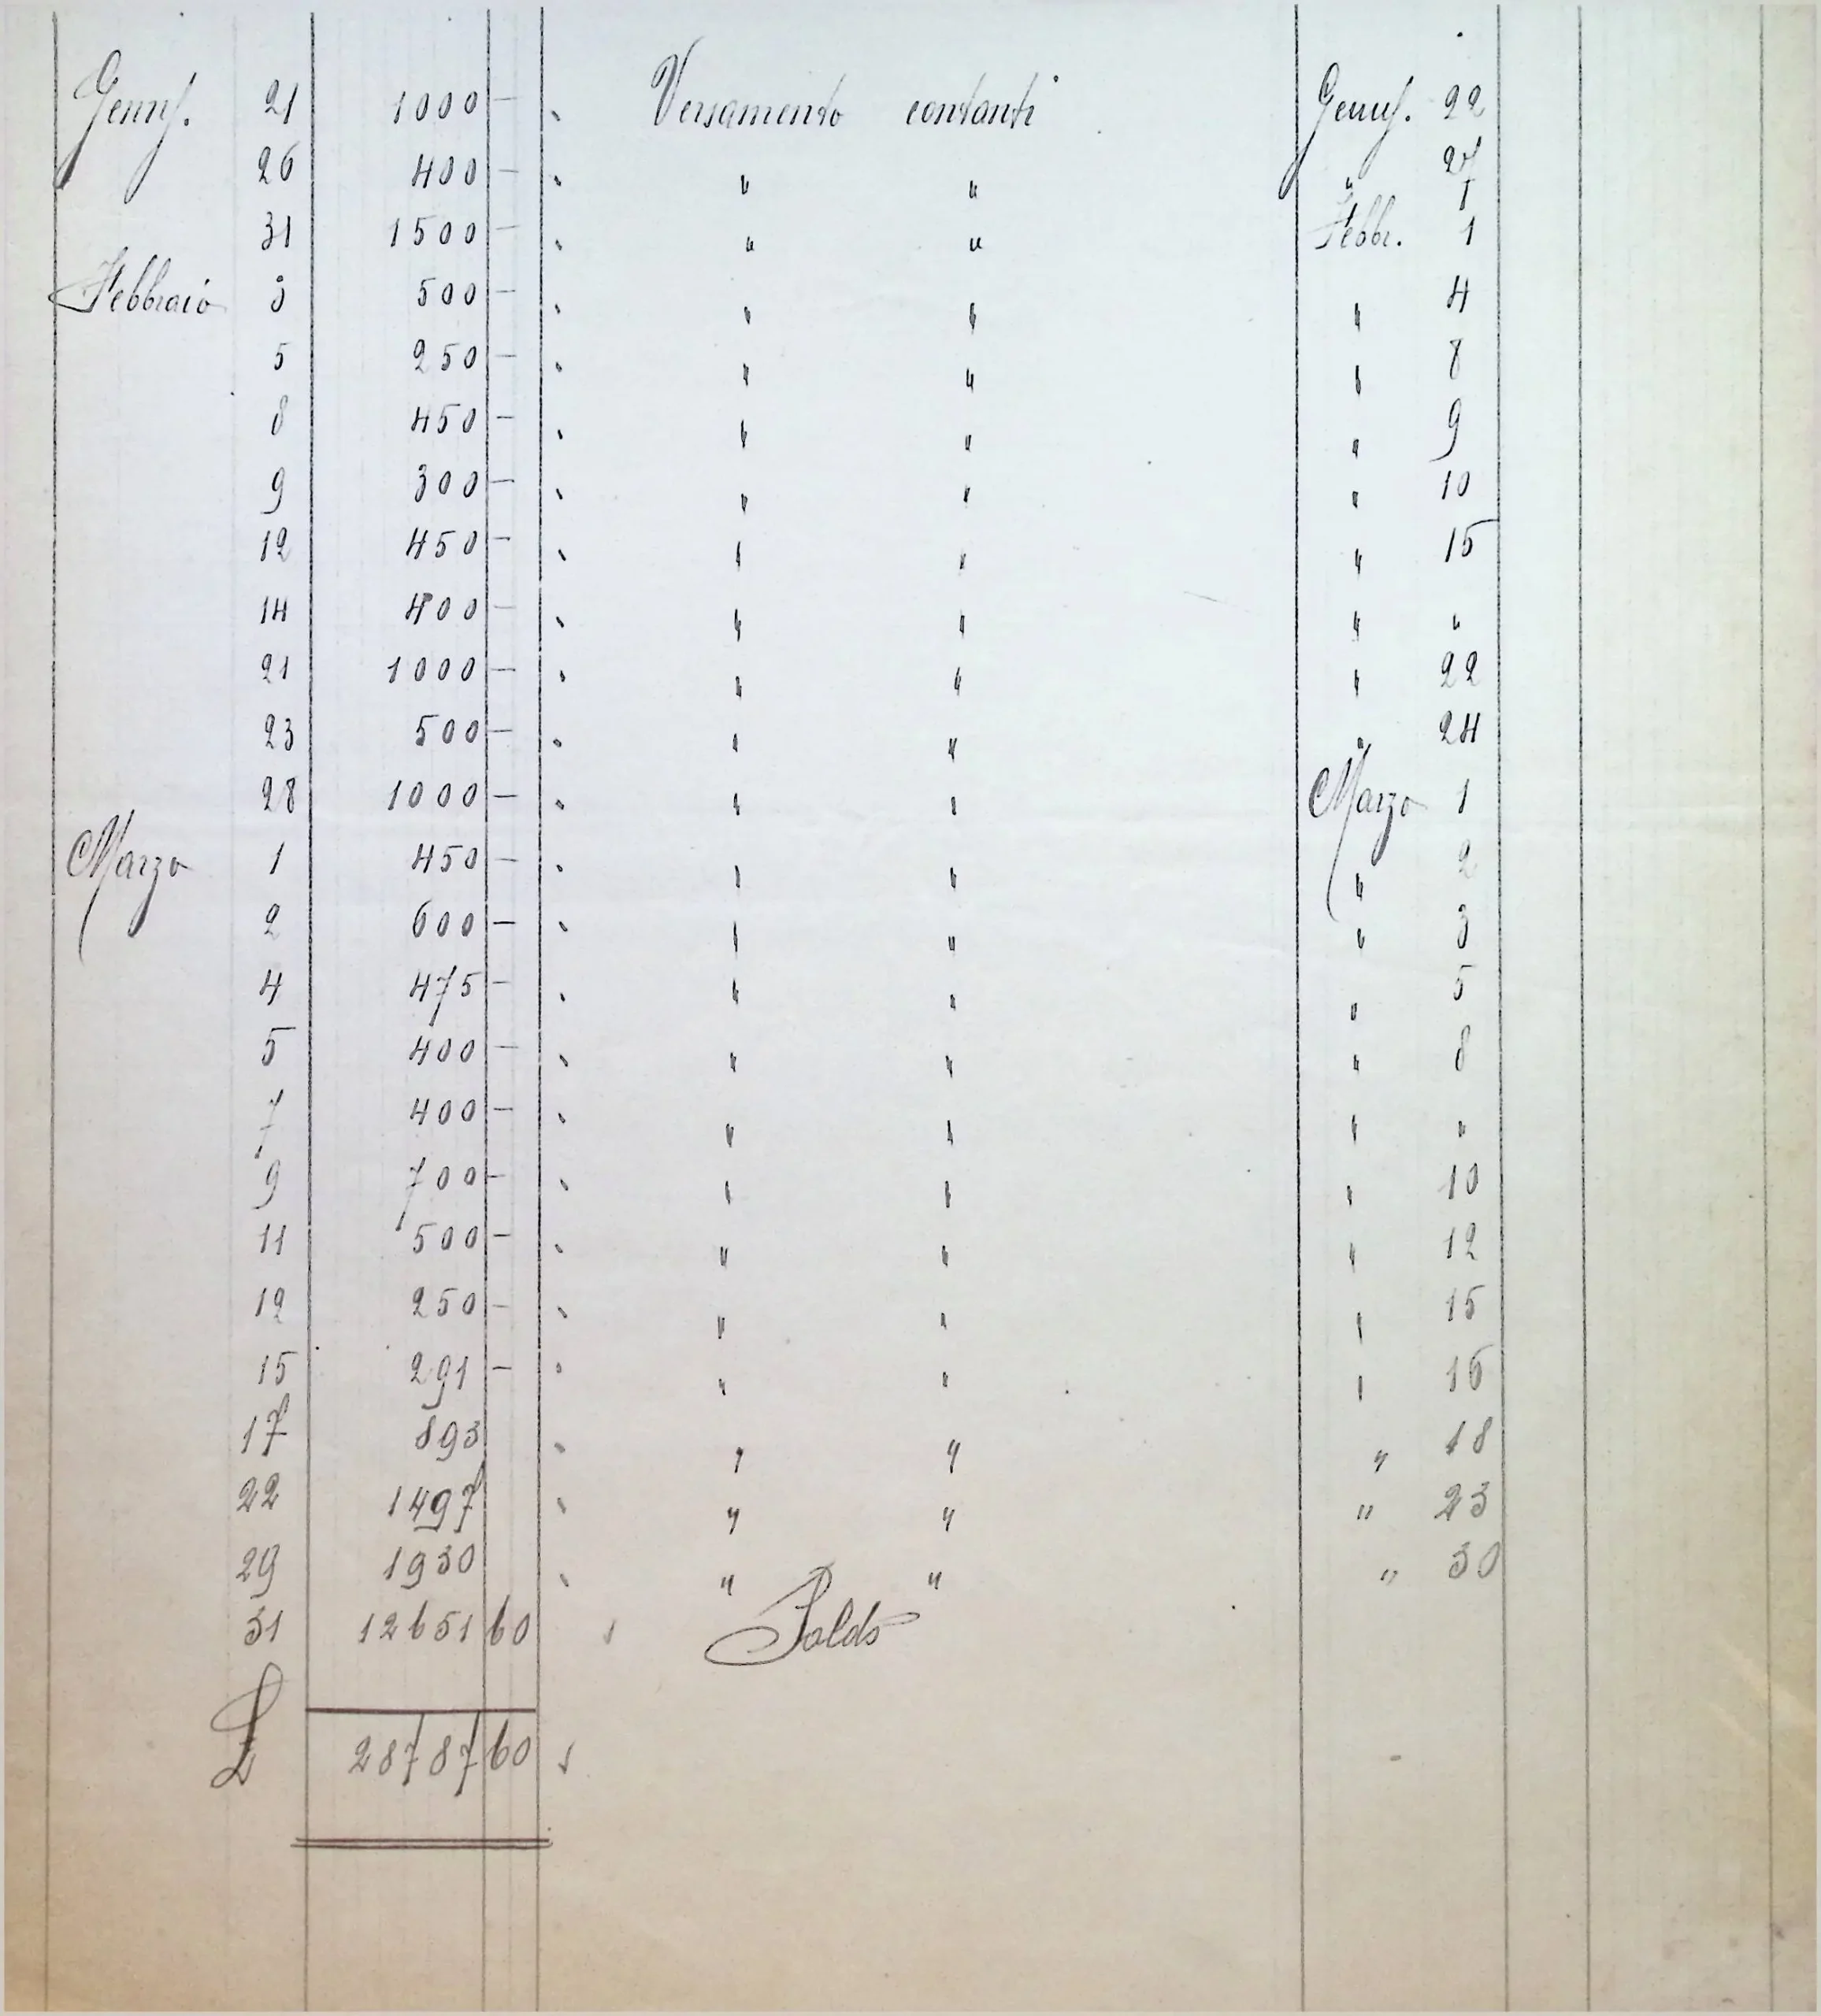 Genn. 21 1000 — " Versamento contanti Genn. 22
26 400 — " " " " 27
31 1500 — " " " Febbr. 1
Febbraio 3 500 — " " " " 4
5 250 — " " " " 8
8 450 — " " " " 9
9 300 — " " " " 10
12 450 — " " " " 15
14 400 — " " " " "
21 1000 — " " " " 22
23 500 — " " " " 24
28 1000 — " " " Marzo 1
Marzo 1 450 — " " " " 2
2 600 — " " " " 3
4 475 — " " " " 5
5 400 — " " " " 8
7 400 — " " " " "
9 700 — " " " " 10
11 500 — " " " " 12
12 250 — " " " " 15
15 291 — " " " " 16
17 893 " " " " 18
22 1497 " " " " 23
29 1930 " " " " 30
31 12651 60 " Saldo
£ 28787 60